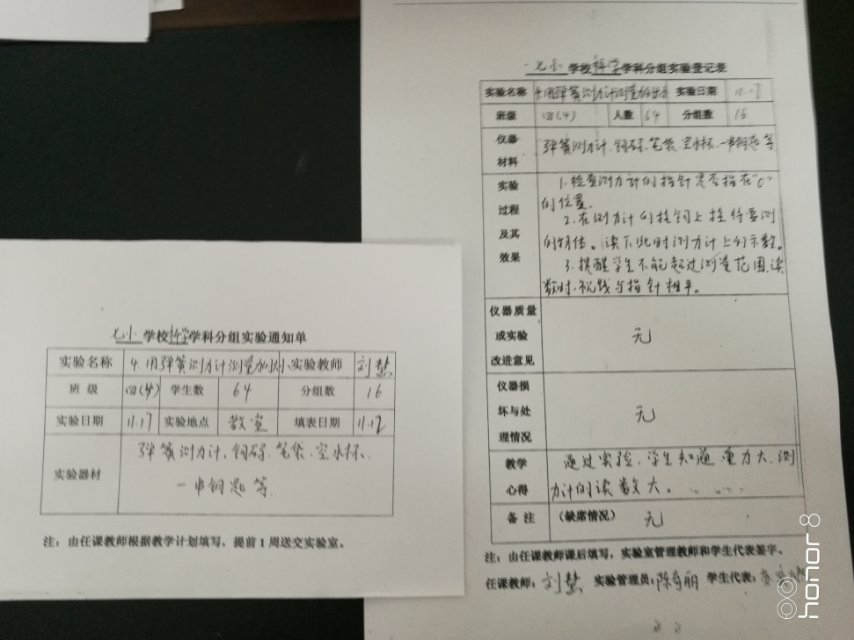 七小学校科学学科分组实验通知单
实验名称 4.用弹簧测力计测量力的大小 实验教师 刘慧
班级 四(4) 学生数 64 分组数 16
实验日期 11.17 实验地点 教室 填表日期 11.12
实验器材 弹簧测力计、钩码、笔袋、空水杯、
一串钥匙等
注：由任课教师根据教学计划填写，提前1周送交实验室。
七小学校科学学科分组实验登记表
实验名称 4.用弹簧测力计测量力的 实验日期 11.17
班级 四(4) 人数 64 分组数 16
仪器材料 弹簧测力计、钩码、笔袋、空水杯、一串钥匙等
实验过程及其效果 1.检查测力计的指针是否指在“0”
的位置。
2.在测力计的挂钩上挂待要测
的物体。读下此时测力计上的示数。
3.提醒学生不能超过测量范围,读
数时,视线与指针相平。
仪器质量或实验改进意见 无
仪器损坏与处理情况 无
教学心得 通过实验,学生知道重力大,测
力计的读数大。……
备注 (缺席情况) 无
注：由任课教师课后填写，实验室管理教师和学生代表签字。
任课教师：刘慧 实验管理员：陈有丽 学生代表：
honor 8